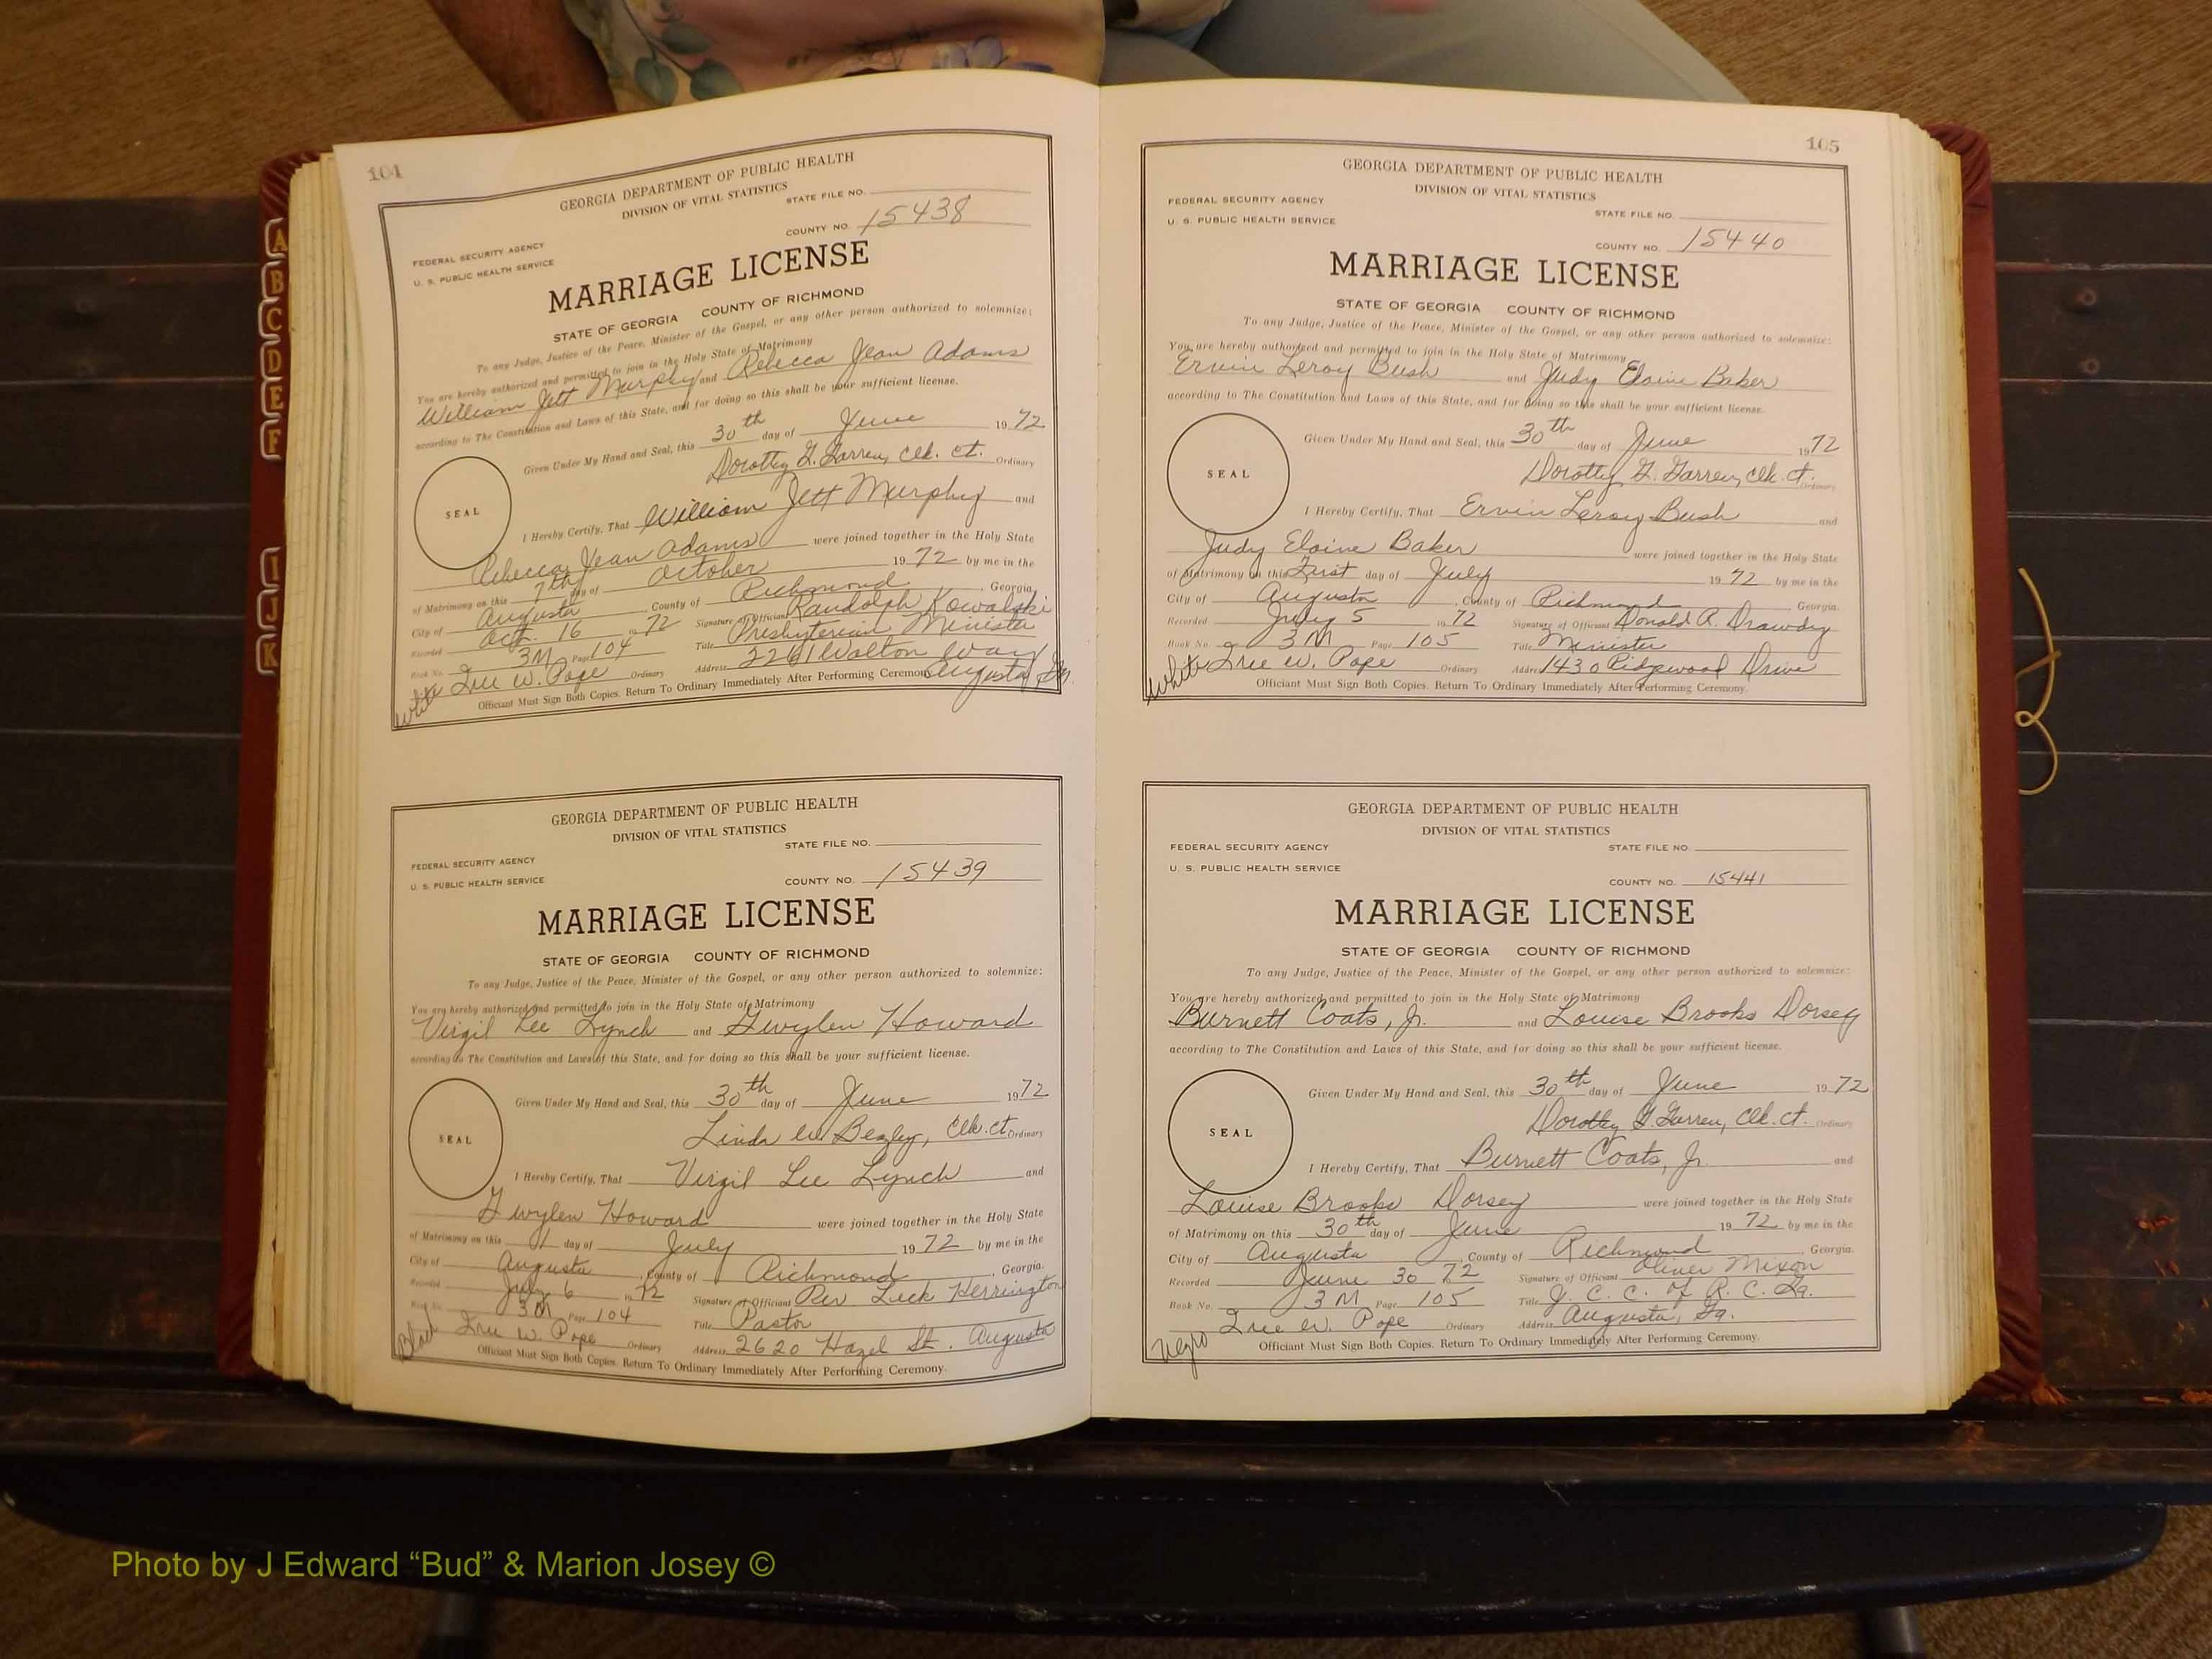 104
GEORGIA DEPARTMENT OF PUBLIC HEALTH
DIVISION OF VITAL STATISTICS
STATE FILE NO.
FEDERAL SECURITY AGENCY
U. S. PUBLIC HEALTH SERVICE
COUNTY NO. 15438
MARRIAGE LICENSE
STATE OF GEORGIA COUNTY OF RICHMOND
To any Judge, Justice of the Peace, Minister of the Gospel, or any other person authorized to solemnize:
You are hereby authorized and permitted to join in the Holy State of Matrimony
William Jett Murphy and Rebecca Jean Adams
according to The Constitution and Laws of this State, and for doing so this shall be your sufficient license.
Given Under My Hand and Seal, this 30th day of June 1972
Dorothy G. Garren, Clk. Ct. Ordinary
SEAL
I Hereby Certify, That William Jett Murphy and
Rebecca Jean Adams were joined together in the Holy State
of Matrimony on this 7th day of October 1972 by me in the
City of Augusta, County of Richmond, Georgia.
Recorded Oct. 16 1972 Signature of Official Randolph Kowalski
Book No. 3M Page 104 Title Presbyterian Minister
Iree W. Pope Ordinary Address 2261 Walton Way
Augusta, Ga.
White
Officiant Must Sign Both Copies. Return To Ordinary Immediately After Performing Ceremony.
GEORGIA DEPARTMENT OF PUBLIC HEALTH
DIVISION OF VITAL STATISTICS
STATE FILE NO.
FEDERAL SECURITY AGENCY
U. S. PUBLIC HEALTH SERVICE
COUNTY NO. 15439
MARRIAGE LICENSE
STATE OF GEORGIA COUNTY OF RICHMOND
To any Judge, Justice of the Peace, Minister of the Gospel, or any other person authorized to solemnize:
You are hereby authorized and permitted to join in the Holy State of Matrimony
Virgil Lee Lynch and Gwylen Howard
according to The Constitution and Laws of this State, and for doing so this shall be your sufficient license.
Given Under My Hand and Seal, this 30th day of June 1972
Linda W. Bezley, Clk. Ct. Ordinary
SEAL
I Hereby Certify, That Virgil Lee Lynch and
Gwylen Howard were joined together in the Holy State
of Matrimony on this 1 day of July 1972 by me in the
City of Augusta, County of Richmond, Georgia.
Recorded July 6 1972 Signature of Officiant Rev Leck Herrington
Book No. 3M Page 104 Title Pastor
Iree W. Pope Ordinary Address 2620 Hazel St. Augusta
Black
Officiant Must Sign Both Copies. Return To Ordinary Immediately After Performing Ceremony.
105
GEORGIA DEPARTMENT OF PUBLIC HEALTH
DIVISION OF VITAL STATISTICS
FEDERAL SECURITY AGENCY
STATE FILE NO.
U. S. PUBLIC HEALTH SERVICE
COUNTY NO. 15440
MARRIAGE LICENSE
STATE OF GEORGIA COUNTY OF RICHMOND
To any Judge, Justice of the Peace, Minister of the Gospel, or any other person authorized to solemnize:
You are hereby authorized and permitted to join in the Holy State of Matrimony
Ervin Leroy Bush and Judy Elaine Baker
according to The Constitution and Laws of this State, and for doing so this shall be your sufficient license.
Given Under My Hand and Seal, this 30th day of June 1972
Dorothy G. Garren, Clk. Ct. Ordinary
SEAL
I Hereby Certify, That Ervin Leroy Bush and
Judy Elaine Baker were joined together in the Holy State
of Matrimony on this First day of July 1972 by me in the
City of Augusta, County of Richmond Georgia.
Recorded July 5 1972 Signature of Officiant Donald R. Drawdy
Book No. 3M Page 105 Title Minister
Iree W. Pope Ordinary Address 1430 Ridgewood Drive
White
Officiant Must Sign Both Copies. Return To Ordinary Immediately After Performing Ceremony.
GEORGIA DEPARTMENT OF PUBLIC HEALTH
DIVISION OF VITAL STATISTICS
FEDERAL SECURITY AGENCY
STATE FILE NO.
U. S. PUBLIC HEALTH SERVICE
COUNTY NO. 15441
MARRIAGE LICENSE
STATE OF GEORGIA COUNTY OF RICHMOND
To any Judge, Justice of the Peace, Minister of the Gospel, or any other person authorized to solemnize:
You are hereby authorized and permitted to join in the Holy State of Matrimony
Burnett Coats, Jr. and Louise Brooks Dorsey
according to The Constitution and Laws of this State, and for doing so this shall be your sufficient license.
Given Under My Hand and Seal, this 30th day of June 1972
Dorothy G. Garren, Clk. Ct. Ordinary
SEAL
I Hereby Certify, That Burnett Coats, Jr. and
Louise Brooks Dorsey were joined together in the Holy State
of Matrimony on this 30th day of June 1972 by me in the
City of Augusta, County of Richmond, Georgia.
Recorded June 30 72 Signature of Officiant Oliver Mixon
Book No. 3M Page 105 Title J. C. C. of R. C. Ga.
Iree W. Pope Ordinary Address Augusta, Ga.
Negro
Officiant Must Sign Both Copies. Return To Ordinary Immediately After Performing Ceremony.
A
B
C
D
E
F
I
J
K
Photo by J Edward “Bud” & Marion Josey ©